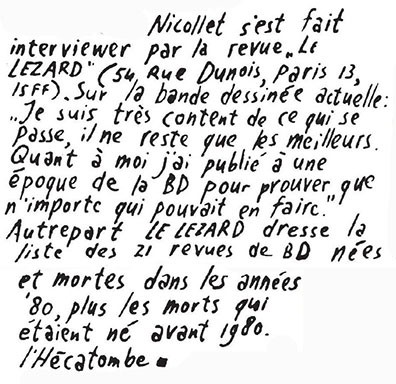 Nicollet s'est fait
interviewer par la revue „LE
LEZARD" (54, Rue Dunois, Paris 13,
15FF). Sur la bande dessinée actuelle:
„Je suis très content de ce qui se
passe, il ne reste que les meilleurs.
Quant à moi j'ai publié à une
époque de la BD pour prouver que
n'importe qui pouvait en faire."
Autrepart LE LEZARD dresse la
liste des 21 revues de BD nées
et mortes dans les années
'80, plus les morts qui
étaient né avant 1980.
l'Hécatombe ▪